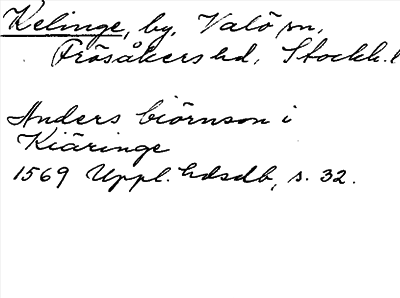 Kelinge, by, Valö sn,
Frösåkers hd, Stockh. l
Anders biörnson i
Kiäringe
1569 Uppl. hdsdb, s. 32.